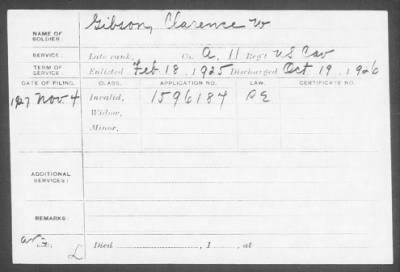 NAME OF SOLDIER: Gibson, Clarence W
SERVICE: Late rank, Co. A, 11 Reg't U S Cav
TERM OF SERVICE Enlisted Feb 18, 1925 Discharged Oct 19, 1926
DATE OF FILING. CLASS. APPLICATION NO. LAW. CERTIFICATE NO.
1927 Nov. 4 Invalid, 1596187 PE
Widow,
Minor,
ADDITIONAL SERVICES:
REMARKS:
Died , 1 , at